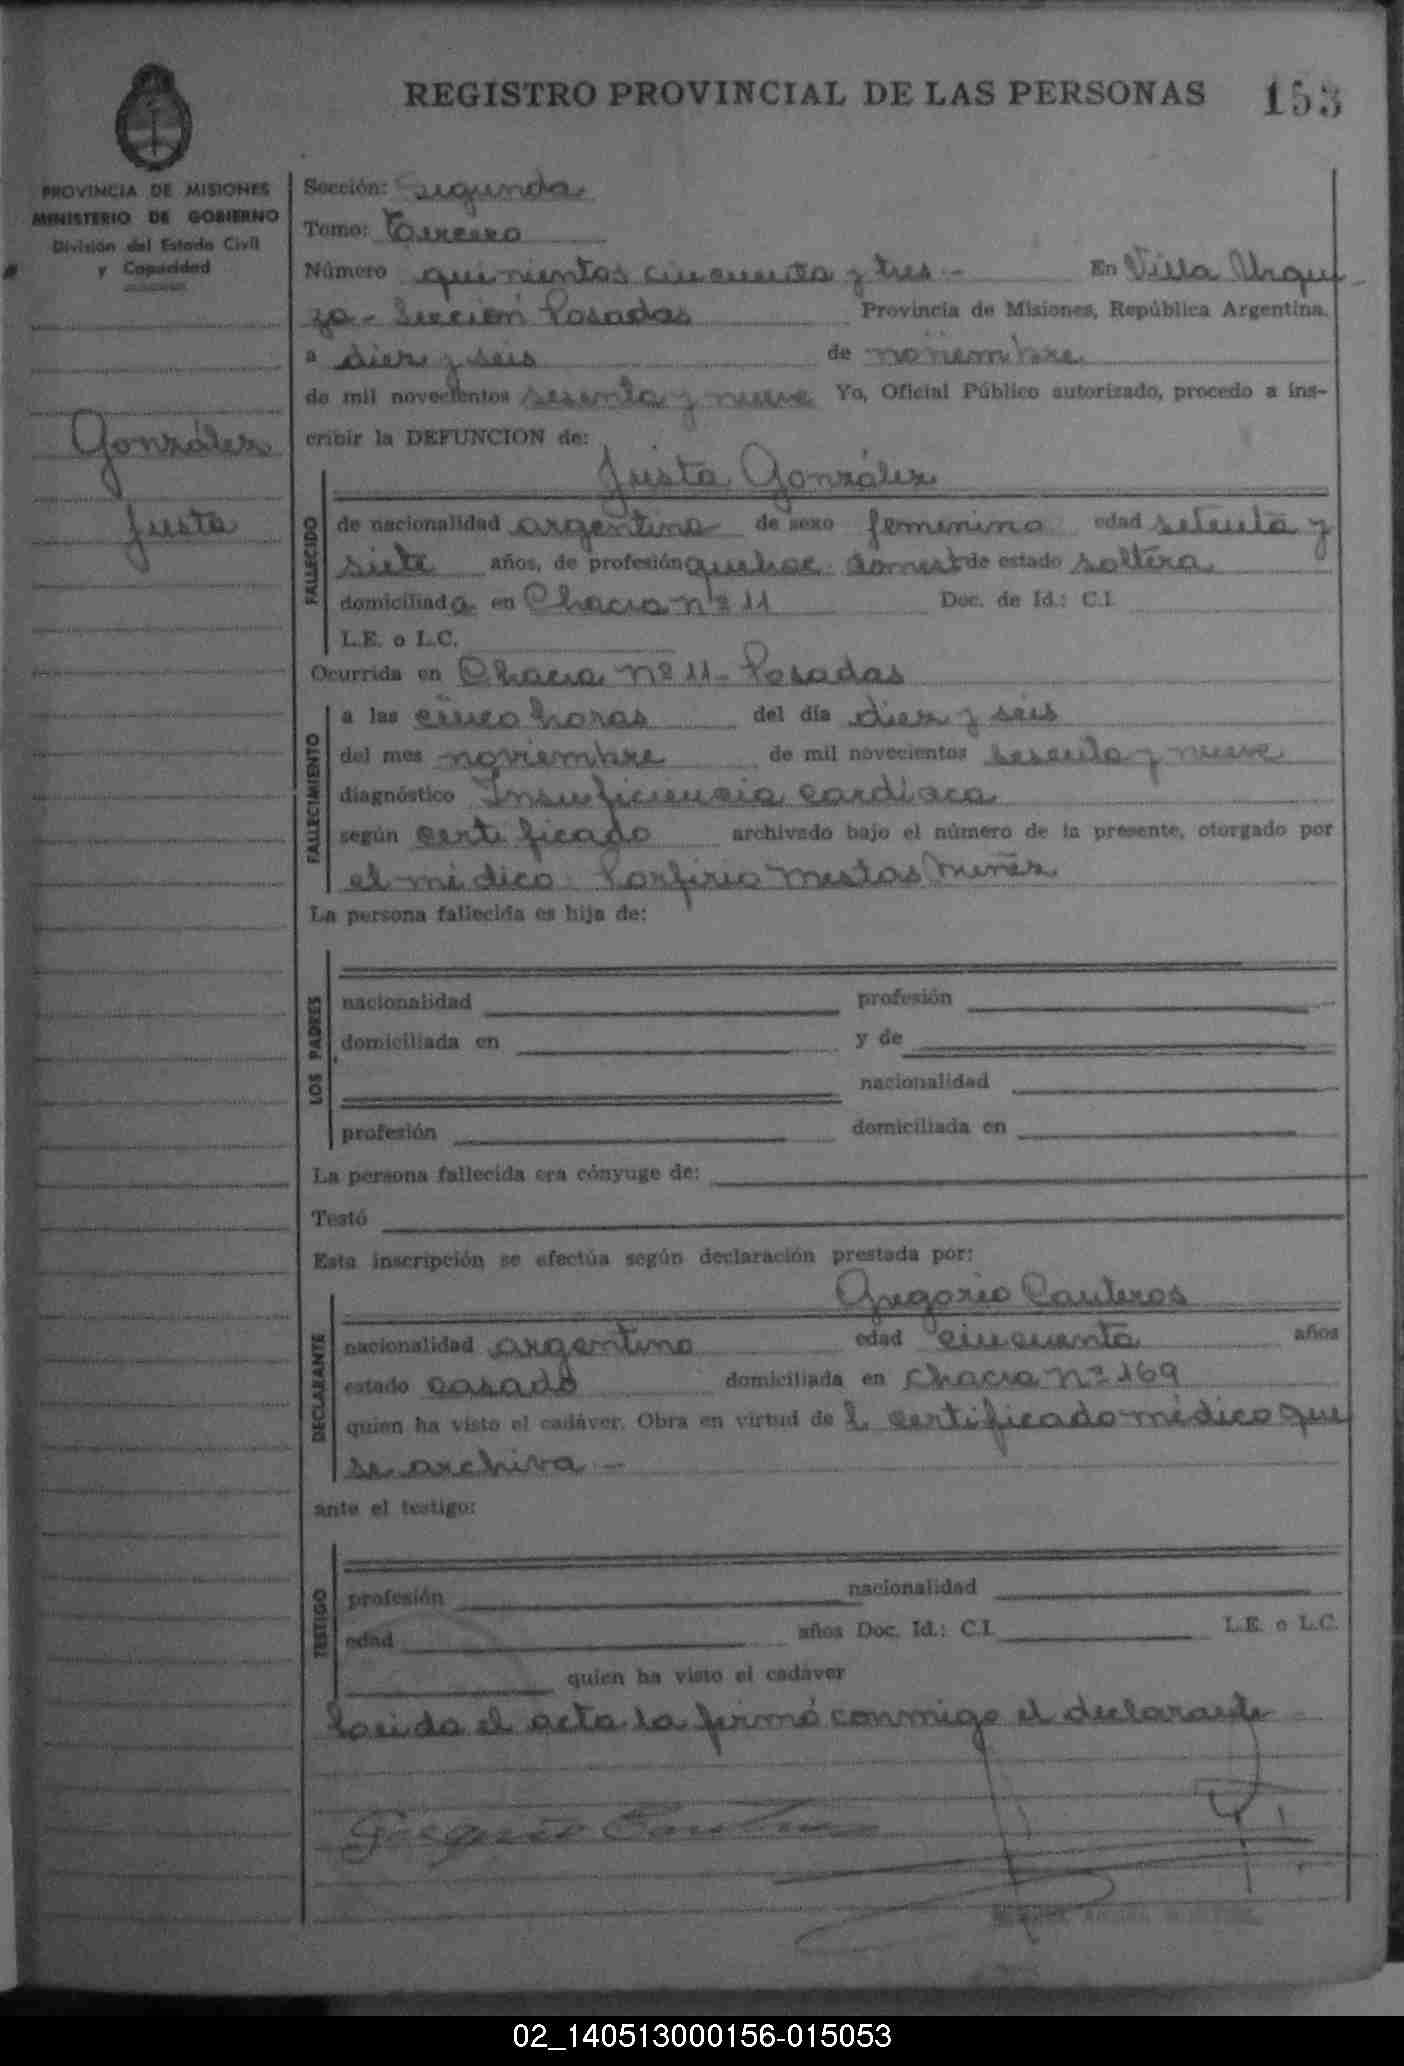 REGISTRO PROVINCIAL DE LAS PERSONAS 153
PROVINCIA DE MISIONES
MINISTERIO DE GOBIERNO
División del Estado Civil
y Capacidad
González
Justa
Sección: Segunda
Tomo: Tercero
Número quinientos cincuenta y tres.- En Villa Urqui-
za - Sección Posadas Provincia de Misiones, República Argentina.
a diez y seis de noviembre
de mil novecientos sesenta y nueve Yo, Oficial Público autorizado, procedo a ins-
cribir la DEFUNCION de:
Justa González
FALLECIDO
de nacionalidad argentina de sexo femenino edad setenta y
siete años, de profesión quehac. domest de estado soltera
domiciliada en Chacra nº 11 Doc. de Id.: C.I.
L.E. o L.C.
Ocurrida en Chacra nº 11 - Posadas
FALLECIMIENTO
a las cinco horas del día diez y seis
del mes noviembre de mil novecientos sesenta y nueve
diagnóstico Insuficiencia cardíaca
según certificado archivado bajo el número de la presente, otorgado por
el médico Porfirio Mestas
La persona fallecida es hija de:
LOS PADRES
nacionalidad profesión
domiciliada en y de
nacionalidad
profesión domiciliada en
La persona fallecida era cónyuge de:
Testó
Esta inscripción se efectúa según declaración prestada por:
Gregorio Canteros
DECLARANTE
nacionalidad argentino edad cincuenta años
estado casado domiciliada en chacra nº 169
quien ha visto el cadáver. Obra en virtud de l certificado médico que
se archiva -
ante el testigo:
TESTIGO
profesión nacionalidad
edad años Doc. Id.: C.I. L.E. o L.C.
quien ha visto el cadáver
el acta la firmó conmigo el declarante
Gregorio Canteros
02_140513000156-015053